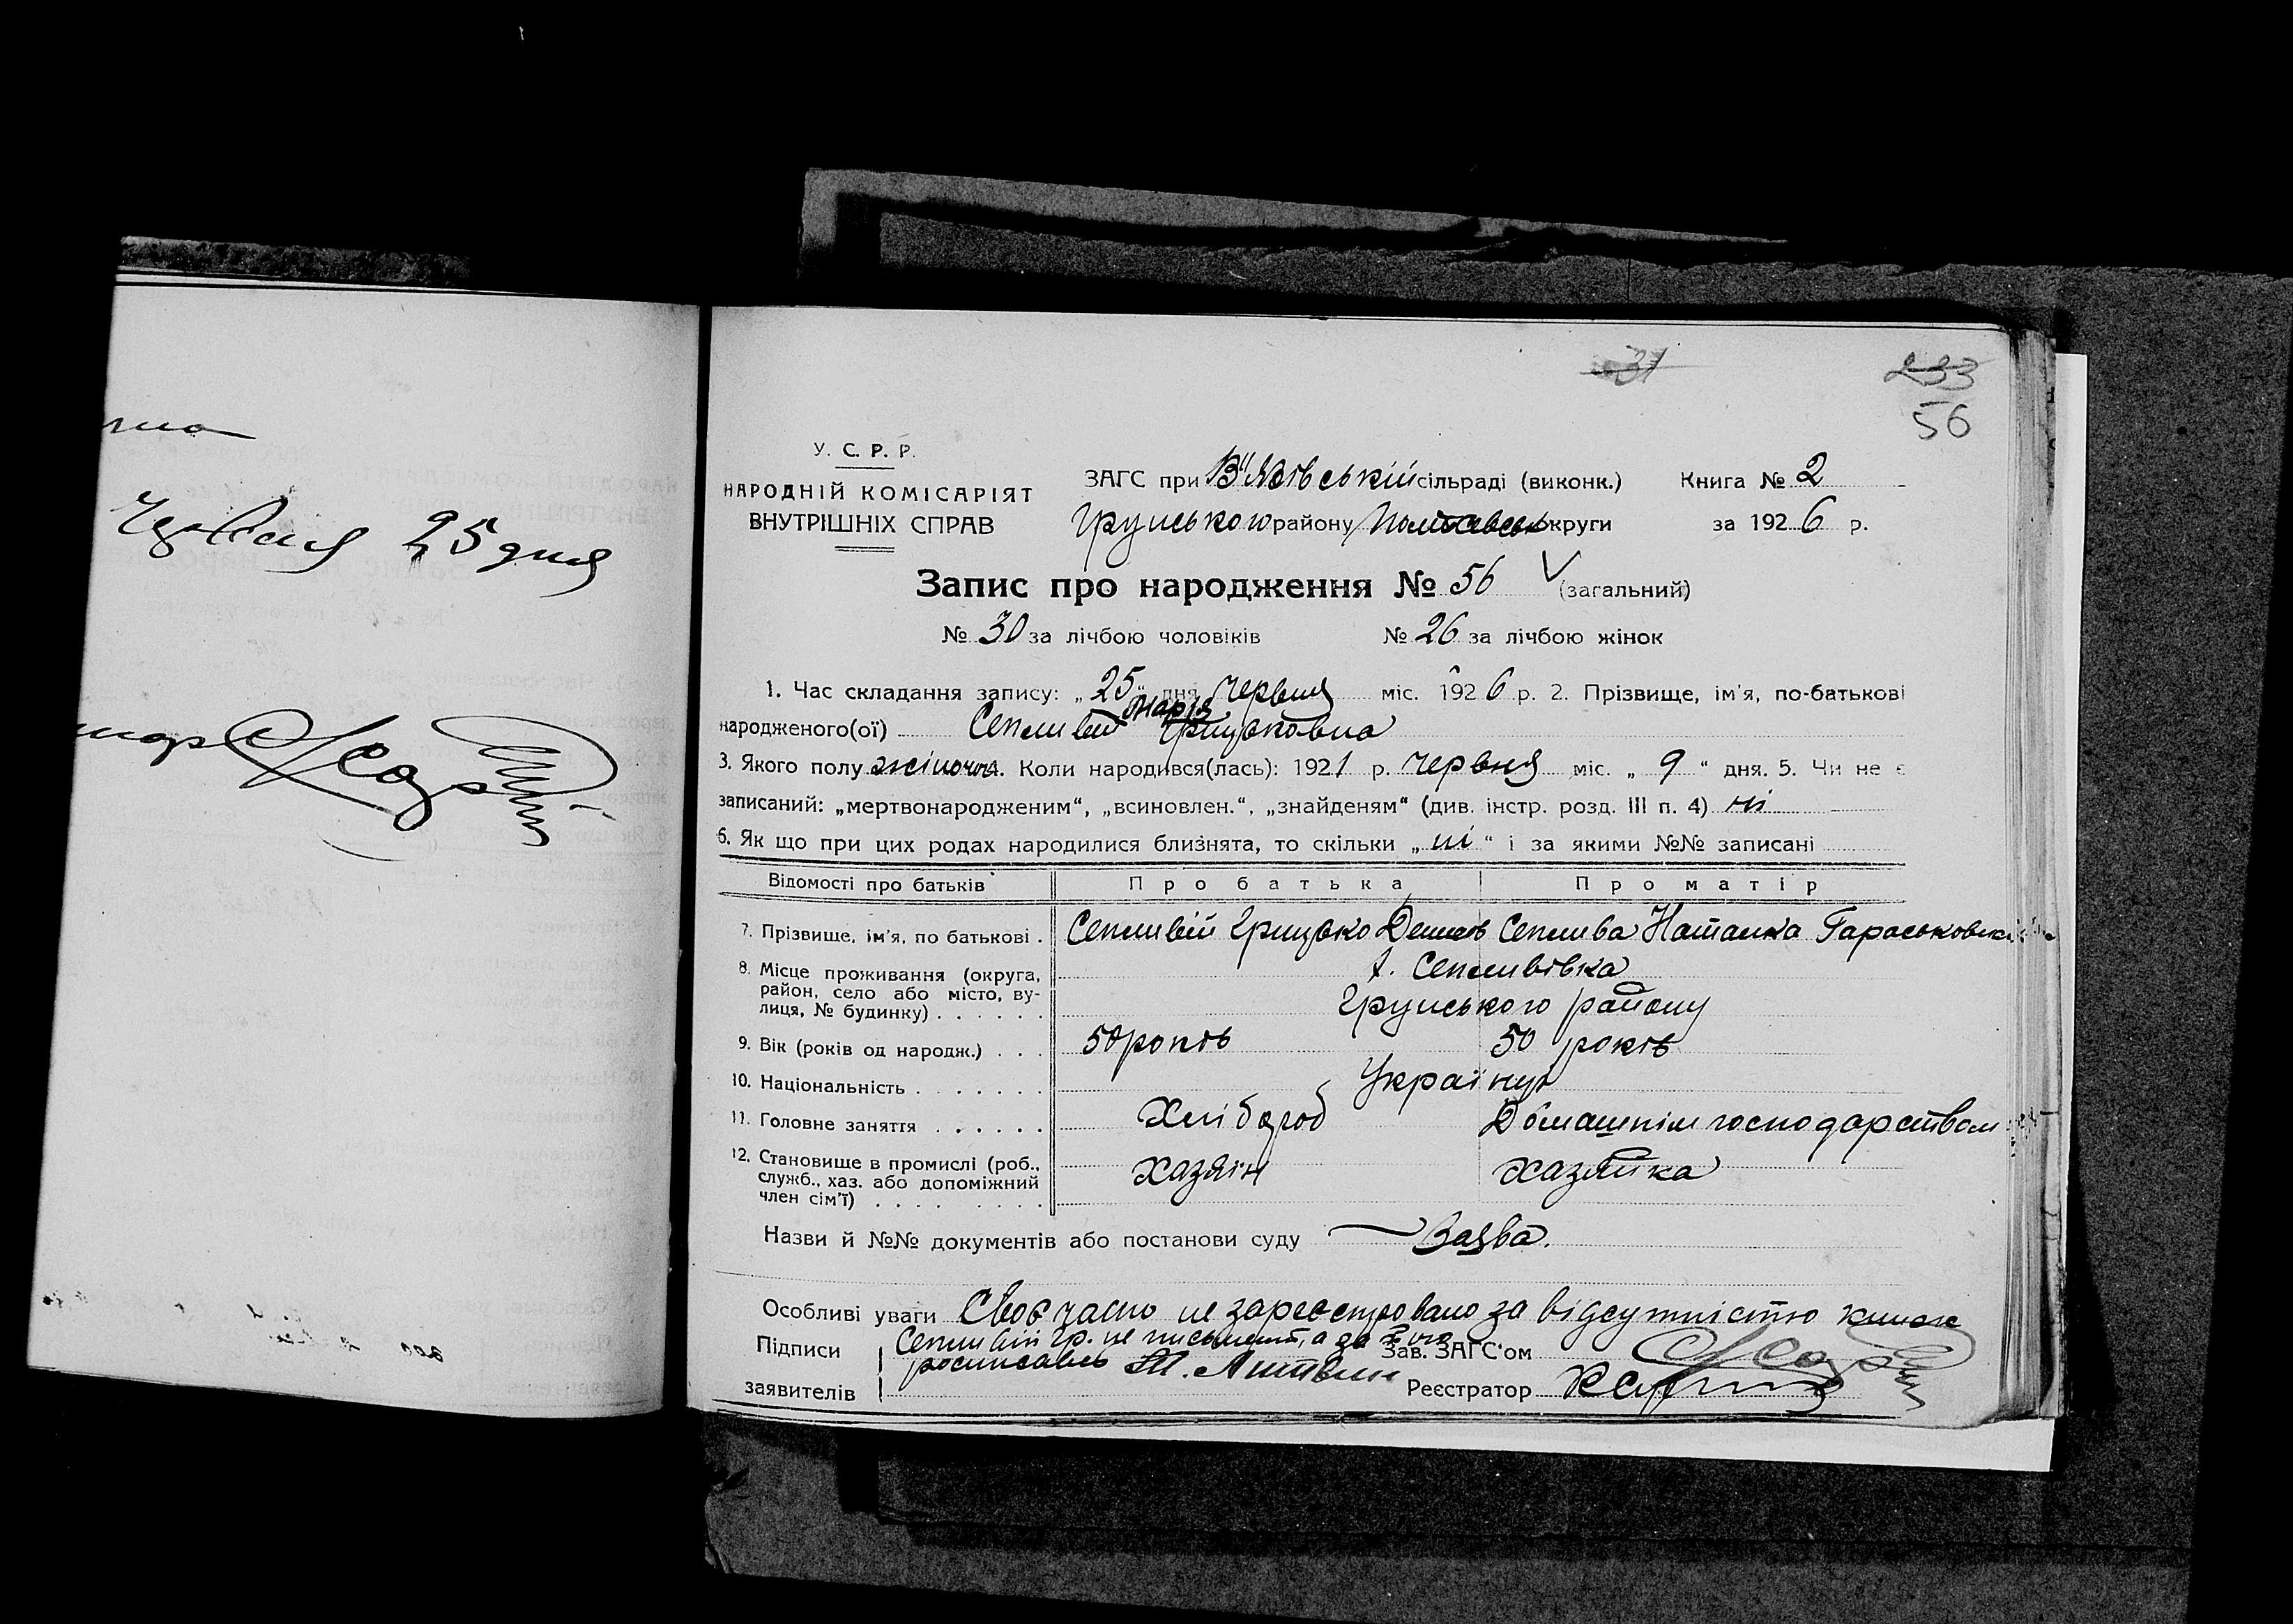 Червня 25 дня
31
233
56
У. С. Р. Р.
НАРОДНІЙ КОМІСАРІЯТ
ВНУТРІШНІХ СПРАВ
ЗАГС при В'язівській сільраді (виконк.) Книга № 2
Грунського району Полтавськ округи за 1926 р.
Запис про народження № 56 (загальний)
№ 30 за лічбою чоловіків № 26 за лічбою жінок
1. Час складання запису: „25“ дня червня міс. 1926 р. 2. Прізвище, ім'я, по-батькові
народженого(ої) Сепливий Марія Грицьковна
3. Якого полу жіночоі. Коли народився(лась): 1921 р. червня міс. „ 9 “ дня. 5. Чи не є
записаний: „мертвонародженим“, „всиновлен.“, „знайденям“ (див. інстр. розд. III п. 4) ні
6. Як що при цих родах народилися близнята, то скільки „ ні “ і за якими №№ записані
Відомості про батьків Про батька Про матір
7. Прізвище, ім'я, по батькові . Сепливий Грицько Сеплива Наталка Гараськовна
8. Місце проживання (округа, район, село або місто, вулиця, № будинку) . . . . . . х. Сепливівка
Грунського району
9. Вік (років од народж.) . . . 50 років 50 років
10. Національність . . . . . . . Українці
11. Головне заняття . . . . . . Хлібороб Домашнім господарством
12. Становище в промислі (роб., служб., хаз. або допоміжний член сім'ї) . . . . . . . . Хазяїн Хазяйка
Назви й №№ документів або постанови суду Заява.
Особливі уваги Своєчасно не зареєстровано за відсутністю книж
Підписи Сепливий Гр. не письмент, а за його Зав. ЗАГС'ом
росписавсь Т. Литвин
заявителів Реєстратор